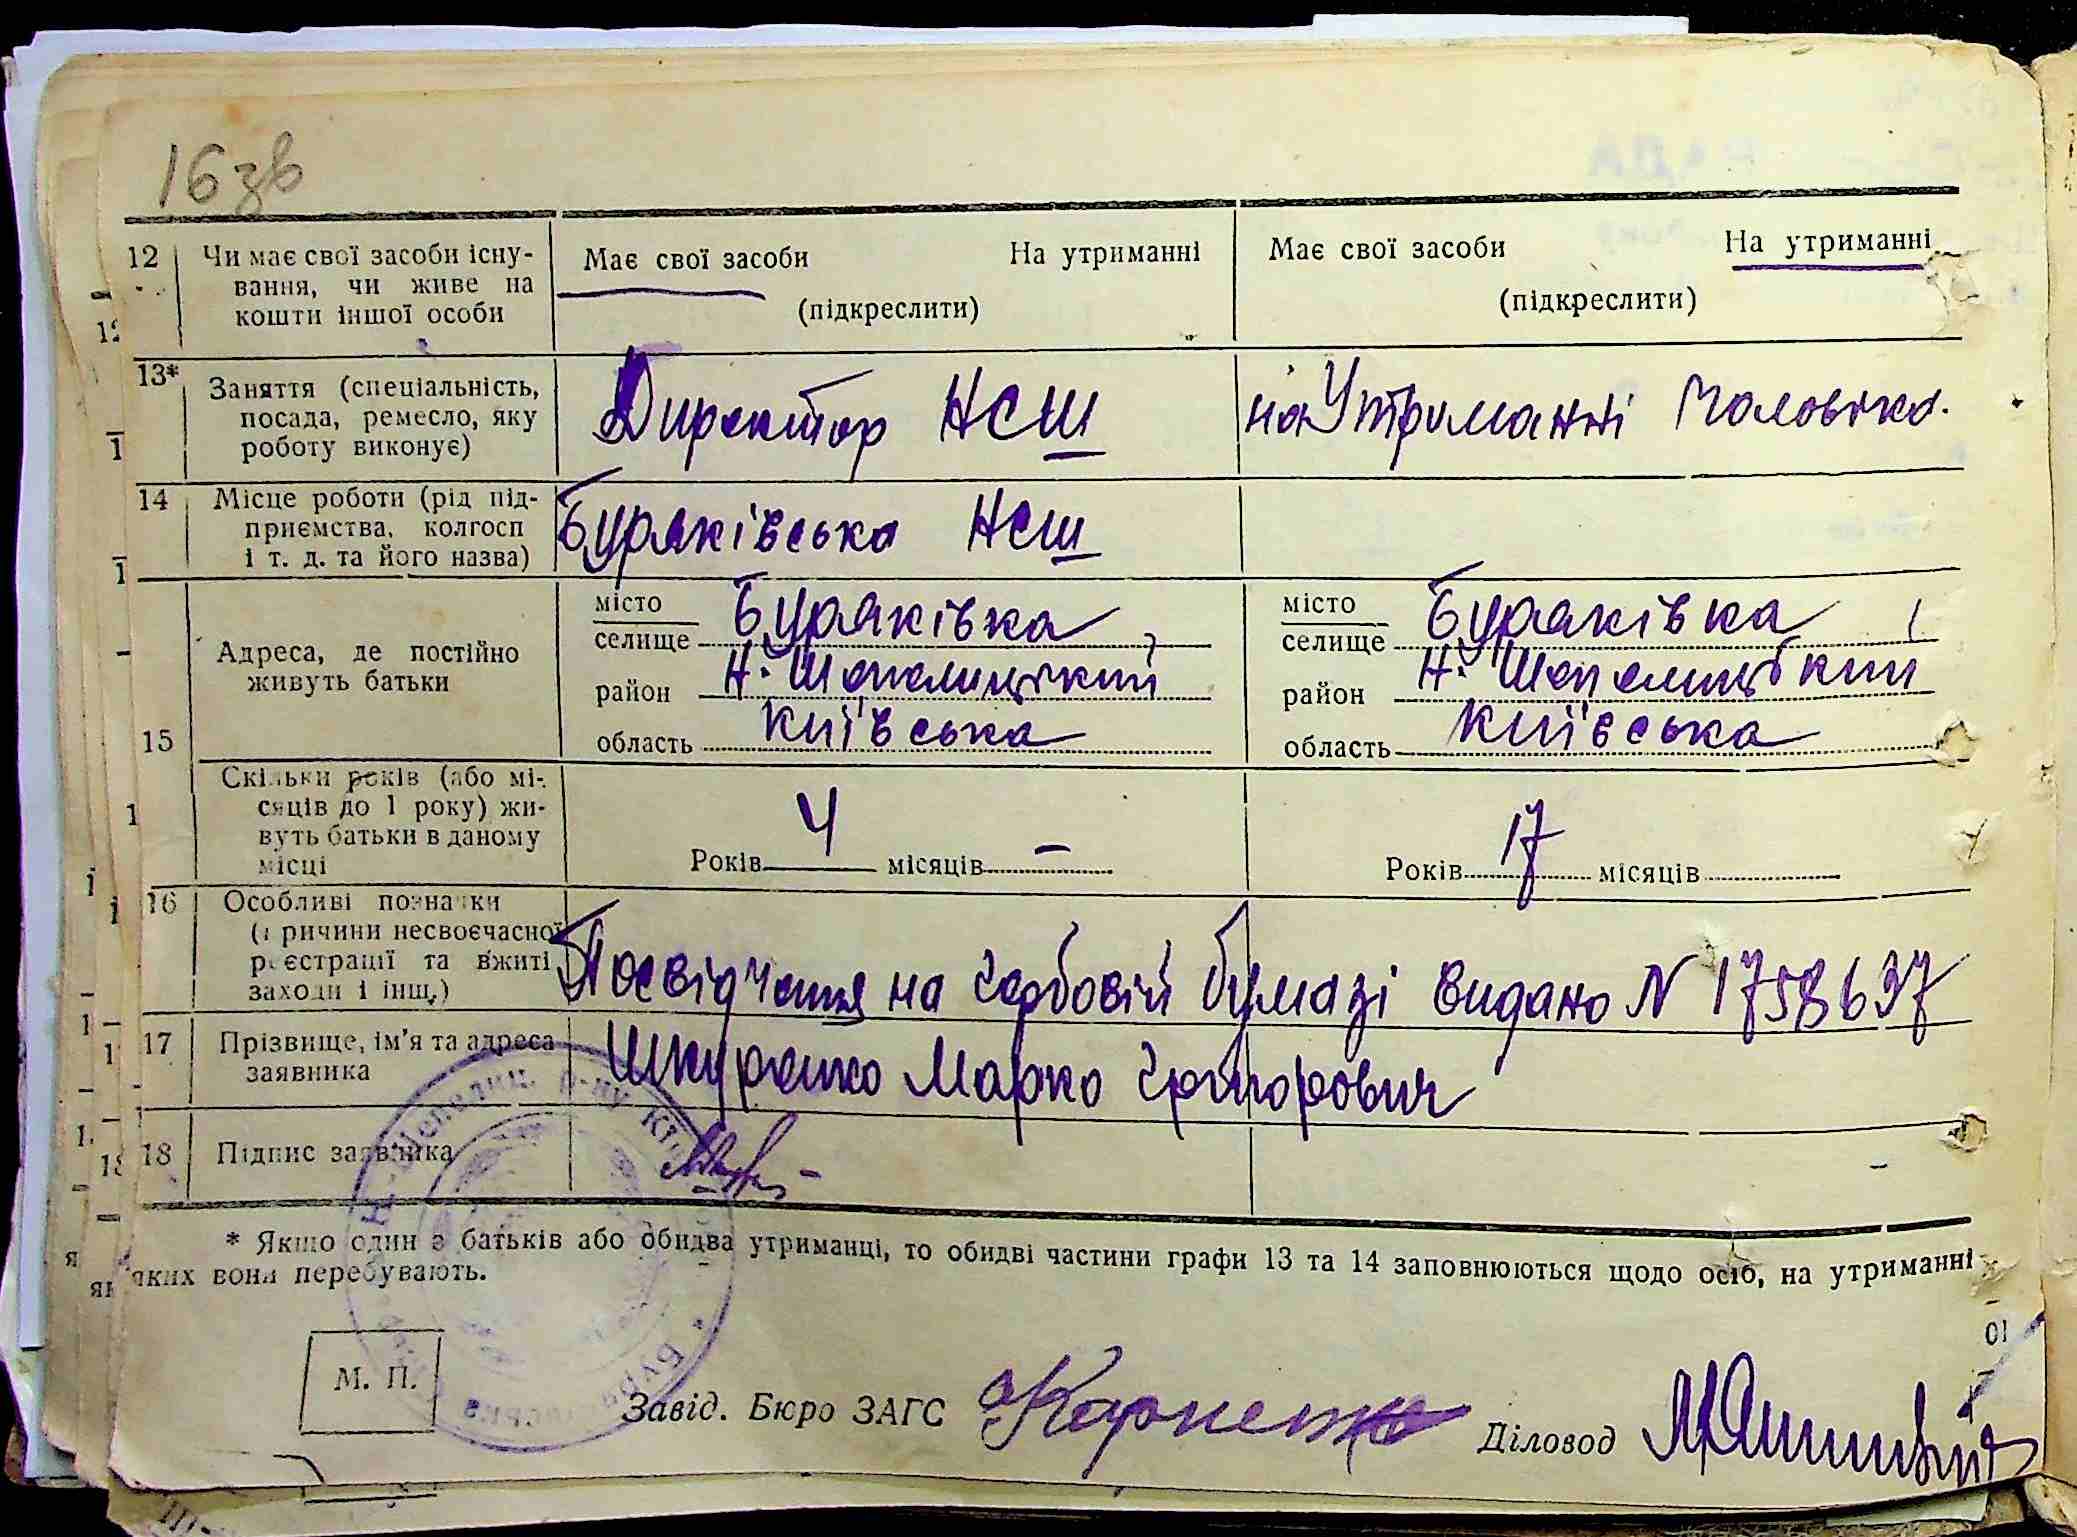 16зв
12 Чи має свої засоби існу-
вання, чи живе на
кошти іншої особи
Має свої засоби На утриманні
(підкреслити)
Має свої засоби На утриманні
(підкреслити)
13* Заняття (спеціальність,
посада, ремесло, яку
роботу виконує)
Директор НСШ
на Утриманні Чоловіка.
14 Місце роботи (рід під-
приємства, колгосп
і т. д. та його назва)
Буряківська НСШ
15 Адреса, де постійно
живуть батьки
місто
селище Буряківка,
район Н. Шепелицький
область Київська
місто
селище Буряківка
район Н. Шепелицький
область Київська
Скільки років (або мі-
сяців до 1 року) жи-
вуть батьки в даному
місці
Років 4 місяців –
Років 17 місяців
16 Особливі позначки
(причини несвоєчасної
реєстрації та вжиті
заходи і інш.)
Посвідчення на гербовій бумазі видано N 1758637
17 Прізвище, ім'я та адреса
заявника
Шкуренко Марко Григорович
18 Підпис заявника
* Якщо один з батьків або обидва утриманці, то обидві частини графи 13 та 14 заповнюються щодо осіб, на утриманні
яких вони перебувають.
М. П.
Завід. Бюро ЗАГС
Діловод